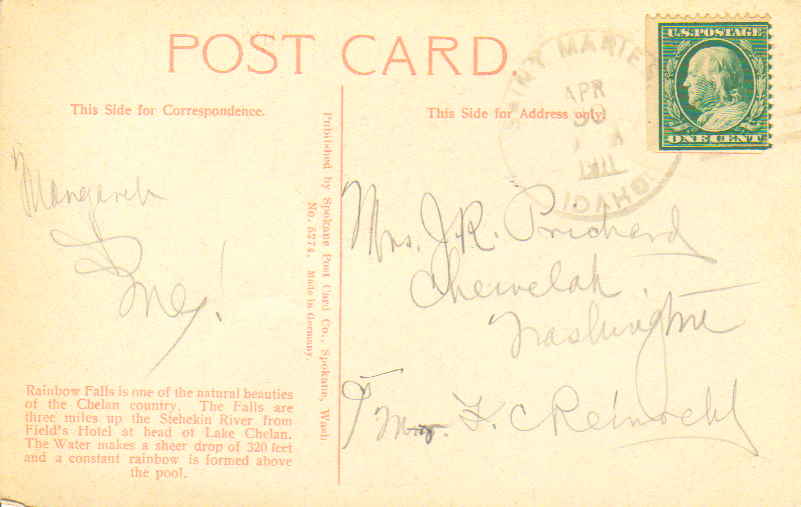 POST CARD
This Side for Correspondence.
This Side for Address only.
U.S. POSTAGE
ONE CENT
SAINT MARIES
APR
30
1911
IDAHO
Published by Spokane Post Card Co., Spokane, Wash
No. 5274. Made in Germany.
Mrs. J.R. Prichard
Chewelah
Washington
Rainbow Falls is one of the natural beauties
of the Chelan country. The Falls are
three miles up the Stehekin River from
Field's Hotel at head of Lake Chelan.
The Water makes a sheer drop of 320 feet
and a constant rainbow is formed above
the pool.